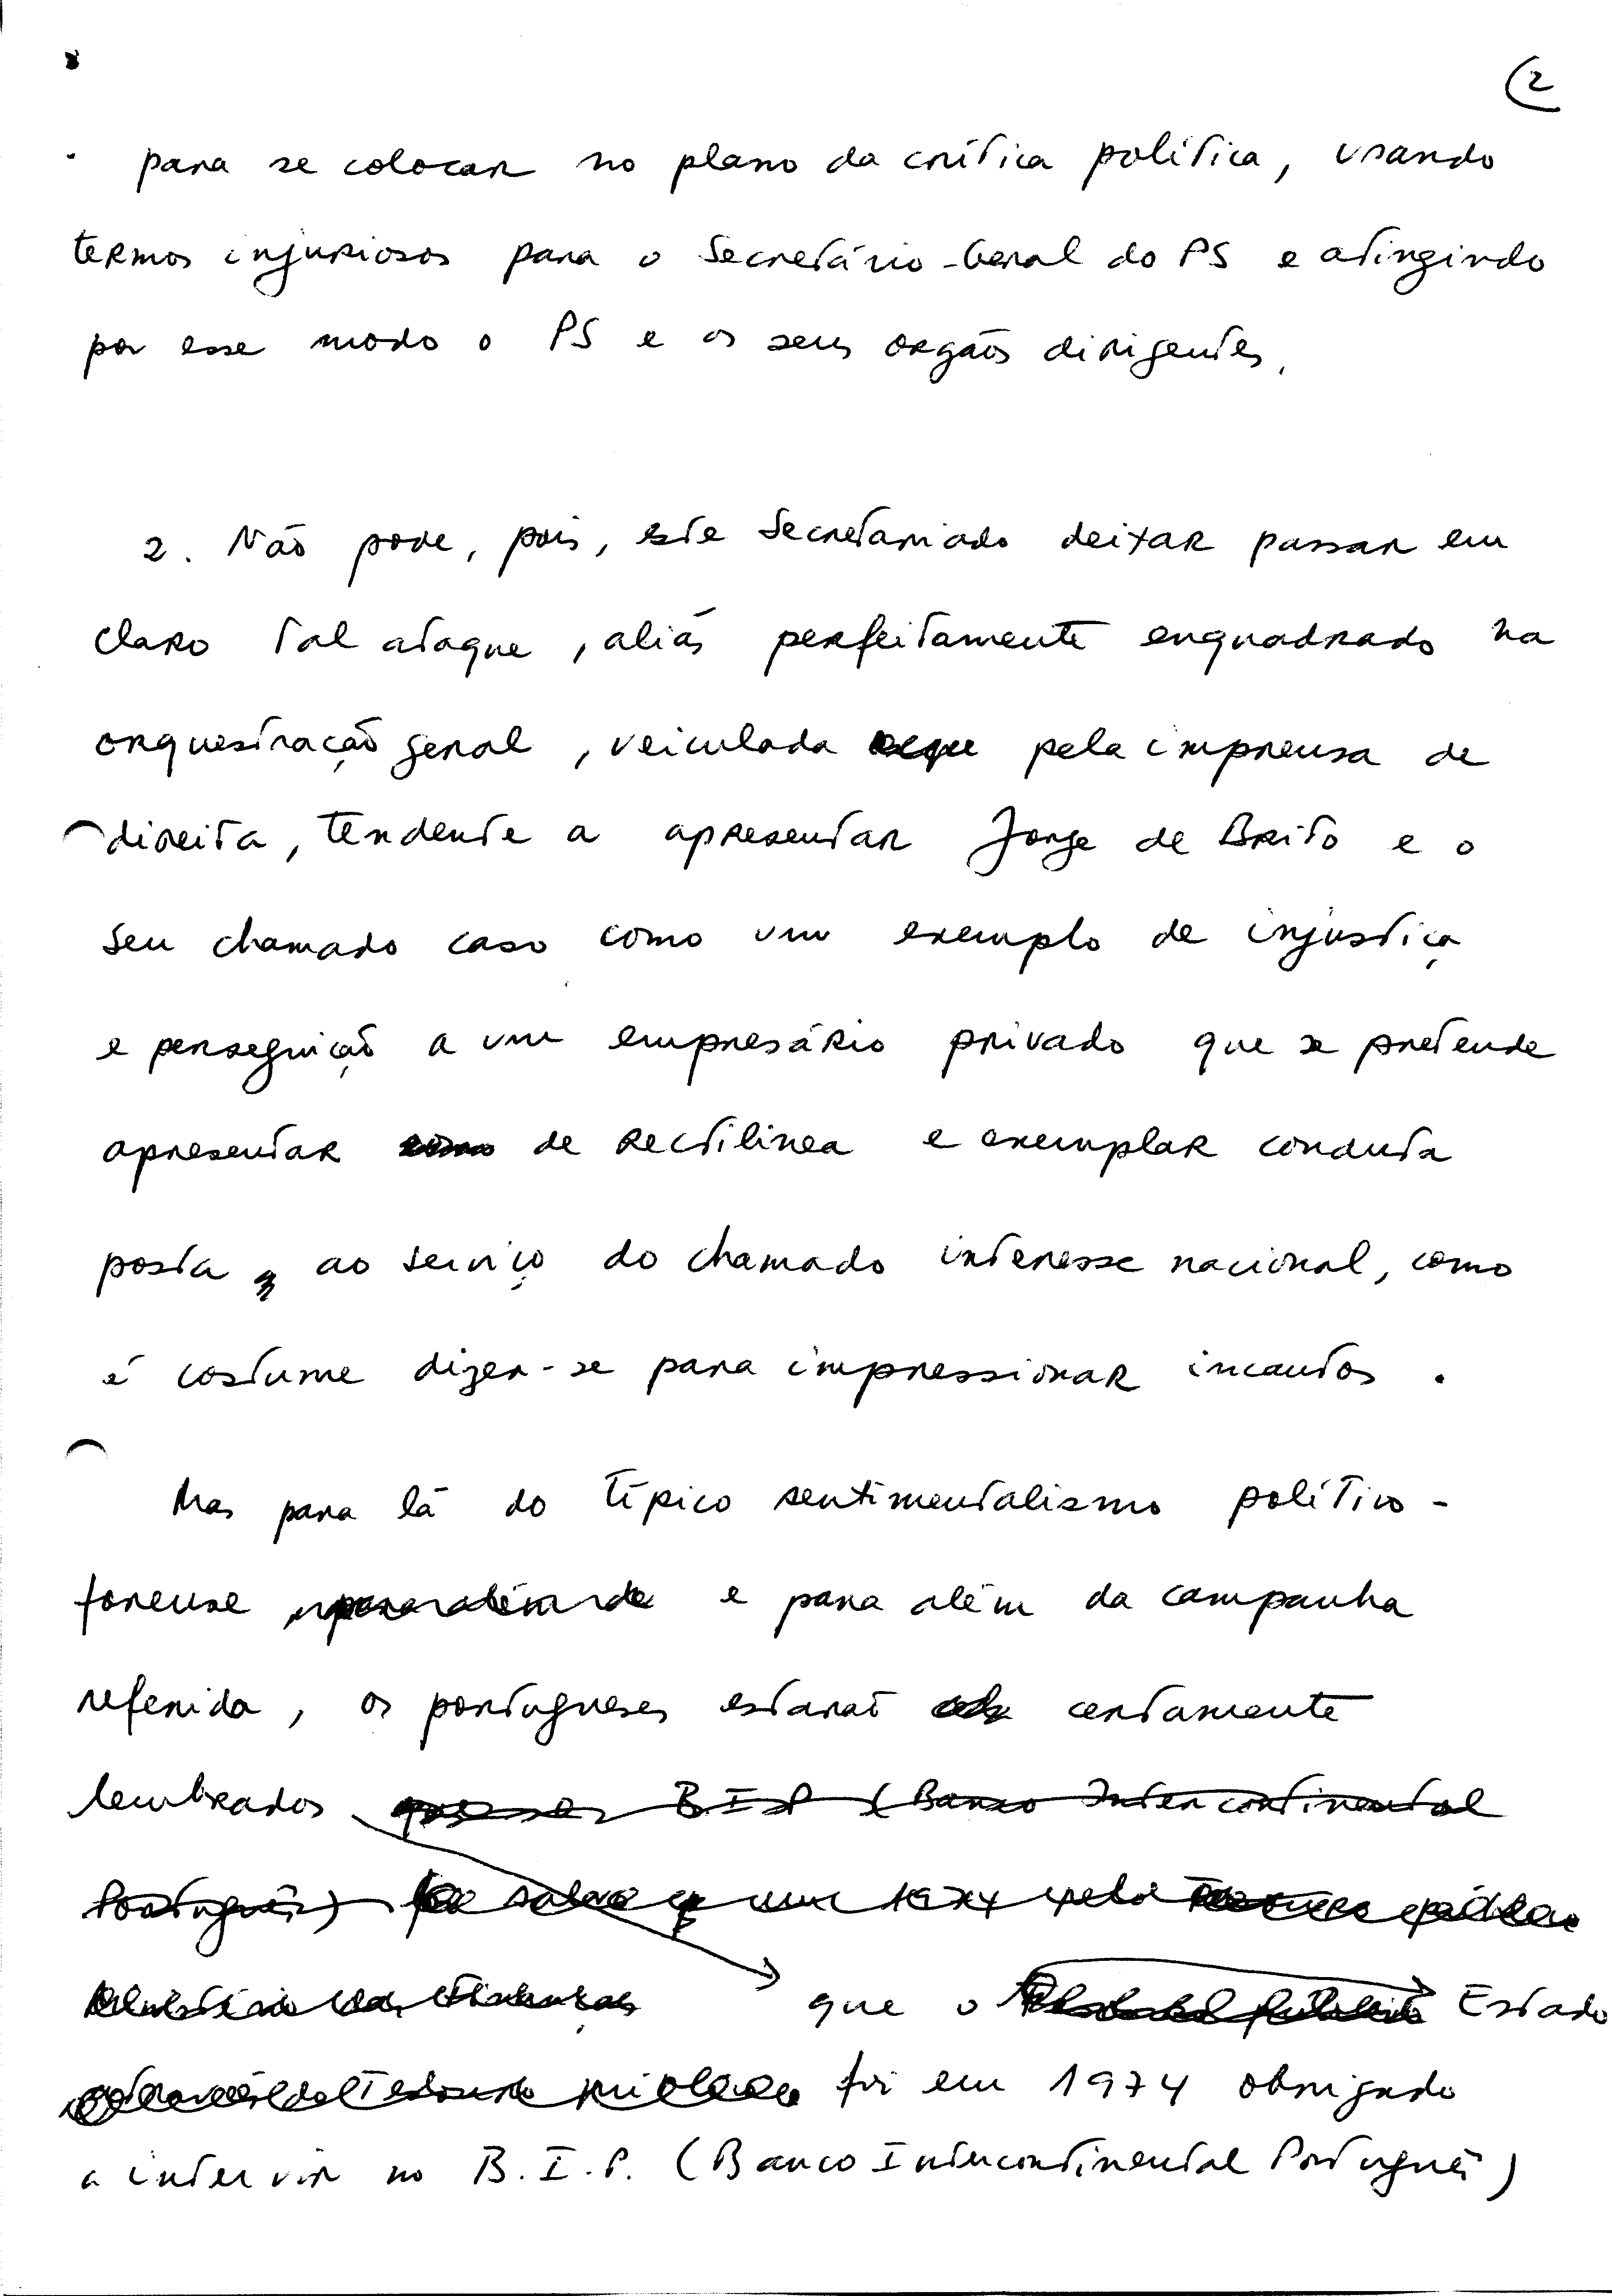 2
para se colocar no plano da crítica política, usando
termos injuriosos para o Secretário-Geral do PS e atingindo
por esse modo o PS e os seus orgãos dirigentes.
2. Não pode, pois, este Secretariado deixar passar em
claro tal ataque, aliás perfeitamente enquadrado na
orquestração geral, veiculada pela imprensa de
direita, tendente a apresentar Jorge de Brito e o
seu chamado caso como um exemplo de injustiça
e perseguição a um empresário privado que se pretende
apresentar como de rectilinea e exemplar conduta
posta ao serviço do chamado interesse nacional, como
é costume dizer-se para impressionar incautos.
Mas para lá do típico sentimentalismo político-
forense para além de e para além da campanha
referida, os portugueses estarão certamente
lembrados B.I.P. (Banco Intercontinental
Português) em 1974 pelo
que o Estado
foi em 1974 obrigado
a intervir no B.I.P. (Banco Intercontinental Português)